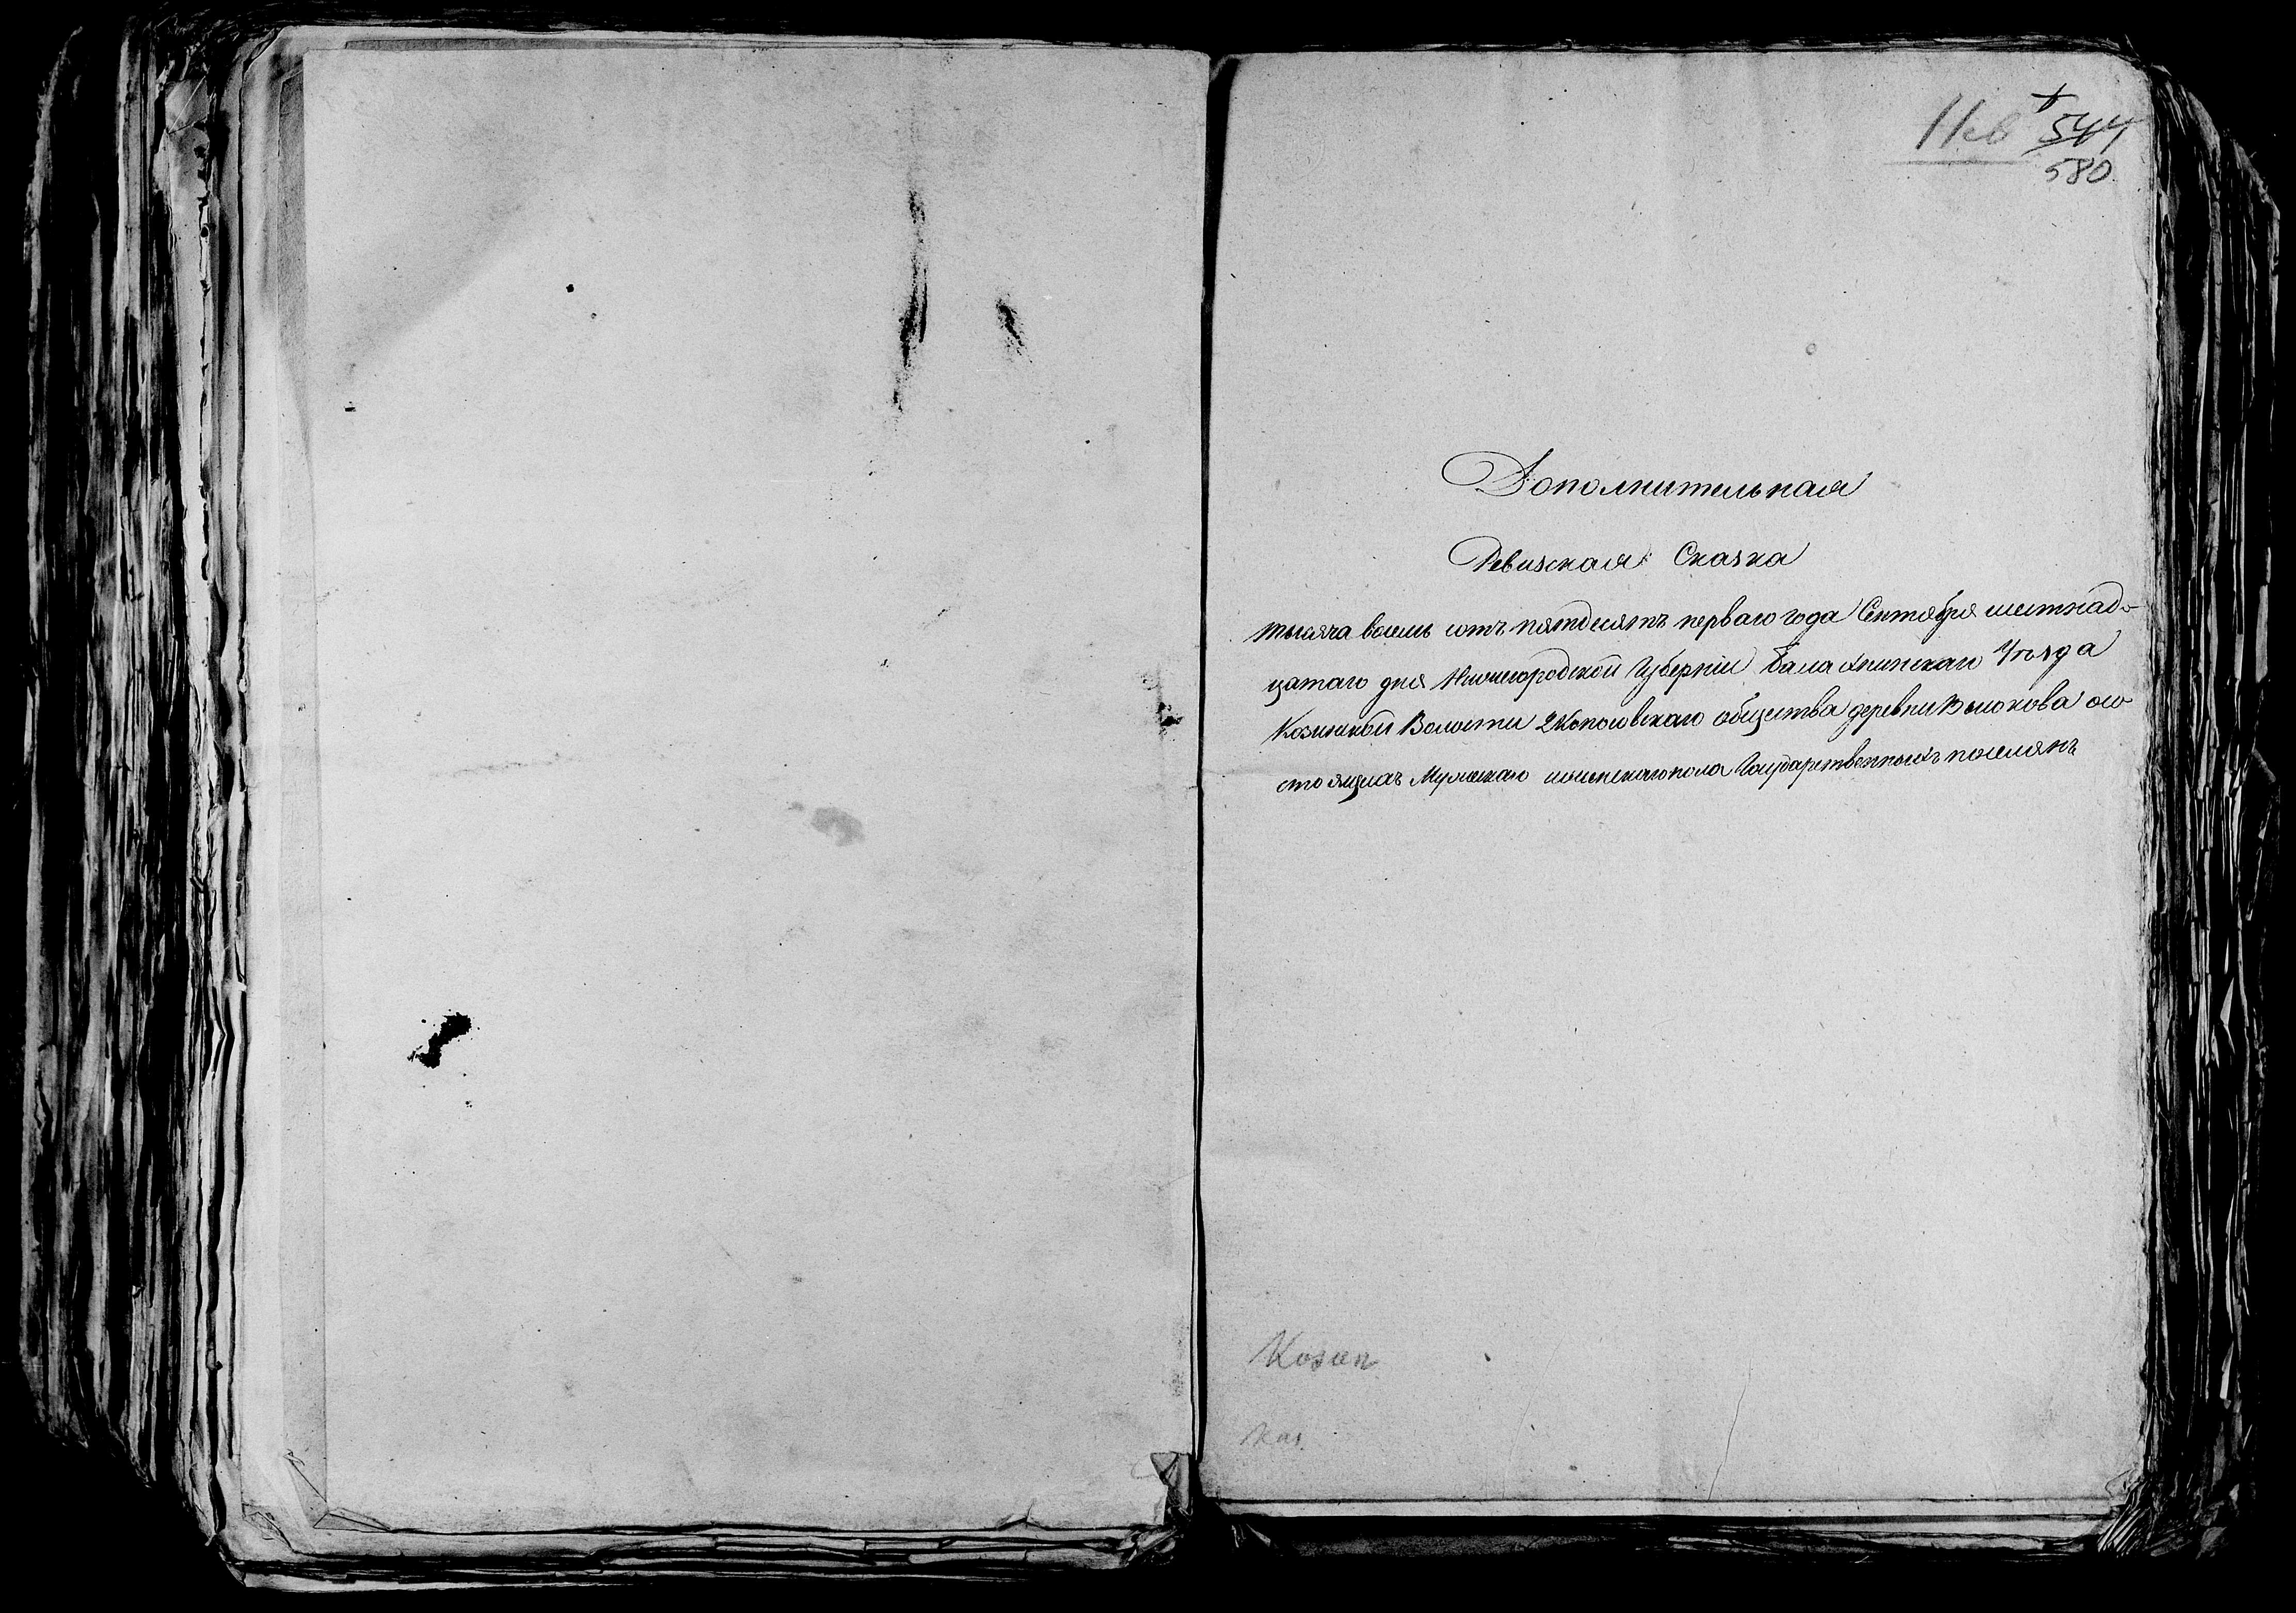 544
580
Дополнительная
Ревизская Сказка
тысяча восемь сотъ пятдесятъ перваго года Сентября шестнад-
цатаго дня Нижегородской Губерніи Балахнинскаго Уѣзда
Козинской Волости 2 Копосовскаго общества деревни Высокова осо
стоящихъ Мужескаго и женскаго пола Государственныхъ поселянъ
Козин